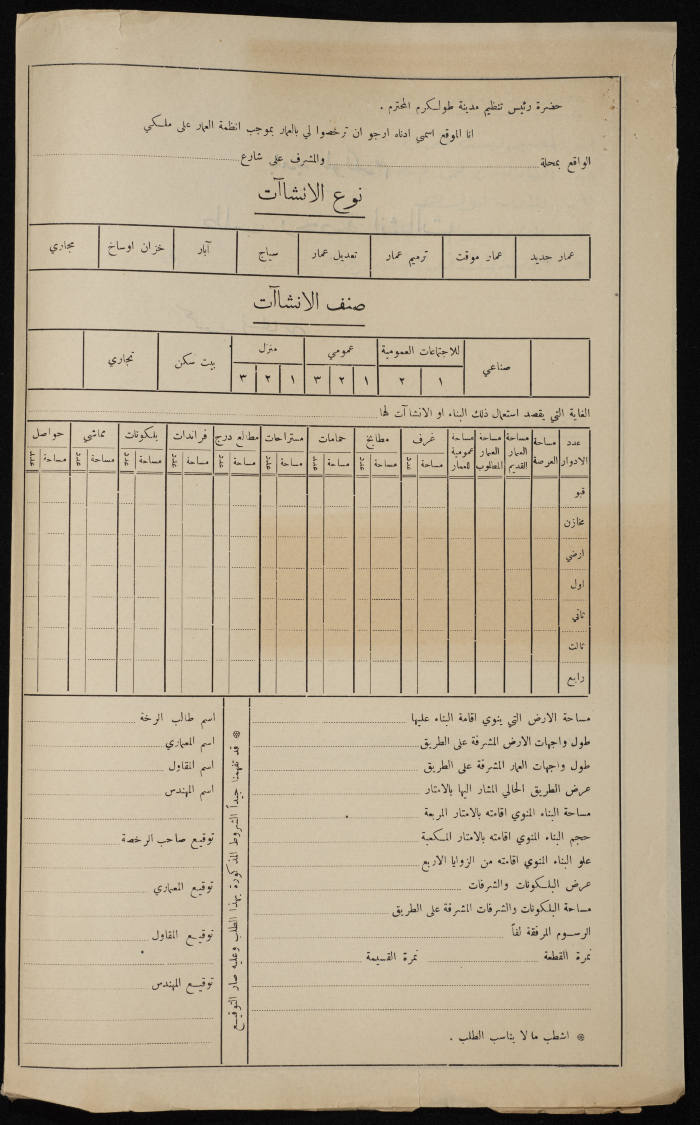 حضرة رئيس تنظيم مدينة طولكرم المحترم .
انا الموقع اسمي ادناه ارجو ان ترخصوا لي بالعمار بموجب انظمة العمار على ملكي
الواقع بمحلة والمشرف على شارع
نوع الانشاآت
عمار جديد عمار موقت ترميم عمار تعديل عمار سياج آبار خزان اوساخ مجاري
صنف الانشاآت
صناعي للاجتماعات العمومية عمومي منزل بيت سكن تجاري
١ ٢ ١ ٢ ٣ ١ ٢ ٣
الغاية التي يقصد استعمال ذلك البناء او الانشاآت لها
عدد الادوار مساحة العرصة مساحة العمار القديم مساحة العمار المطلوب مساحة عمومية للعمار غرف مطابخ حمامات مستراحات مطالع درج فراندات بلكونات مماشي حواصل
مساحة عدد مساحة عدد مساحة عدد مساحة عدد مساحة عدد مساحة عدد مساحة عدد مساحة عدد مساحة عدد
قبو
مخازن
ارضي
اول
ثاني
ثالث
رابع
مساحة الارض التي ينوي اقامة البناء عليها
طول واجهات الارض المشرفة على الطريق
طول واجهات العمار المشرفة على الطريق
عرض الطريق الحالي المشار اليها بالامتار
مساحة البناء المنوي اقامته بالامتار المربعة
حجم البناء المنوي اقامته بالامتار المكعبة
علو البناء المنوي اقامته من الزوايا الاربع
عرض البلكونات والشرفات
مساحة البلكونات والشرفات المشرفة على الطريق
الرسوم المرفقة لفاً
نمرة القطعة نمرة القسيمة
۞ اشطب ما لا يناسب الطلب .
۞ قد تفهمنا جيداً الشروط المذكورة بهذا الطلب وعليه صار التوقيع
اسم طالب الرخة
اسم المعماري
اسم المقاول
اسم المهندس
توقيع صاحب الرخصة
توقيع المعماري
توقيع المقاول
توقيع المهندس